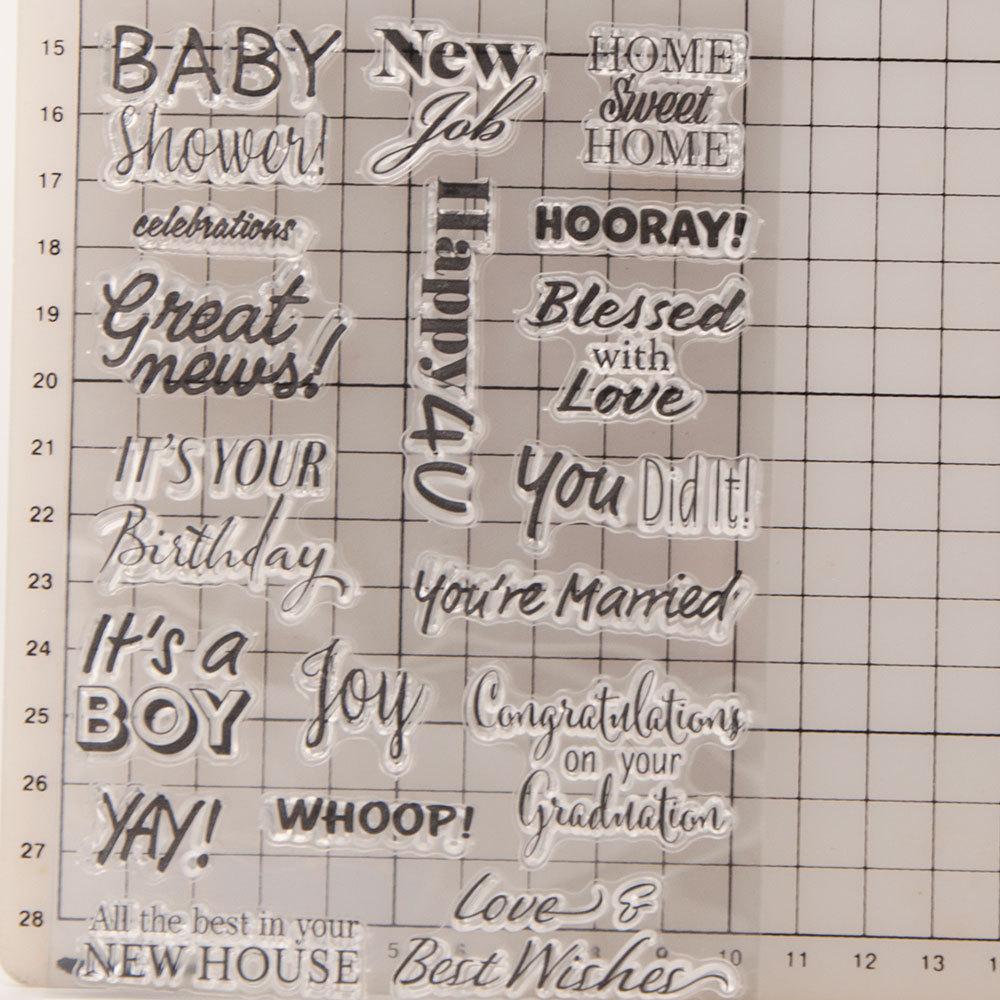 BABY
Shower!
New
Job
HOME
Sweet
HOME
celebrations
Happy 4U
HOORAY!
Great
news!
Blessed
with
Love
IT'S YOUR
Birthday
You Did It!
You're Married
It's a
BOY
Joy
Congratulations
on your
Graduation
YAY!
WHOOP!
All the best in your
NEW HOUSE
Love &
Best Wishes
15
16
17
18
19
20
21
22
23
24
25
26
27
28
5
6
8
9
10
11
12
13